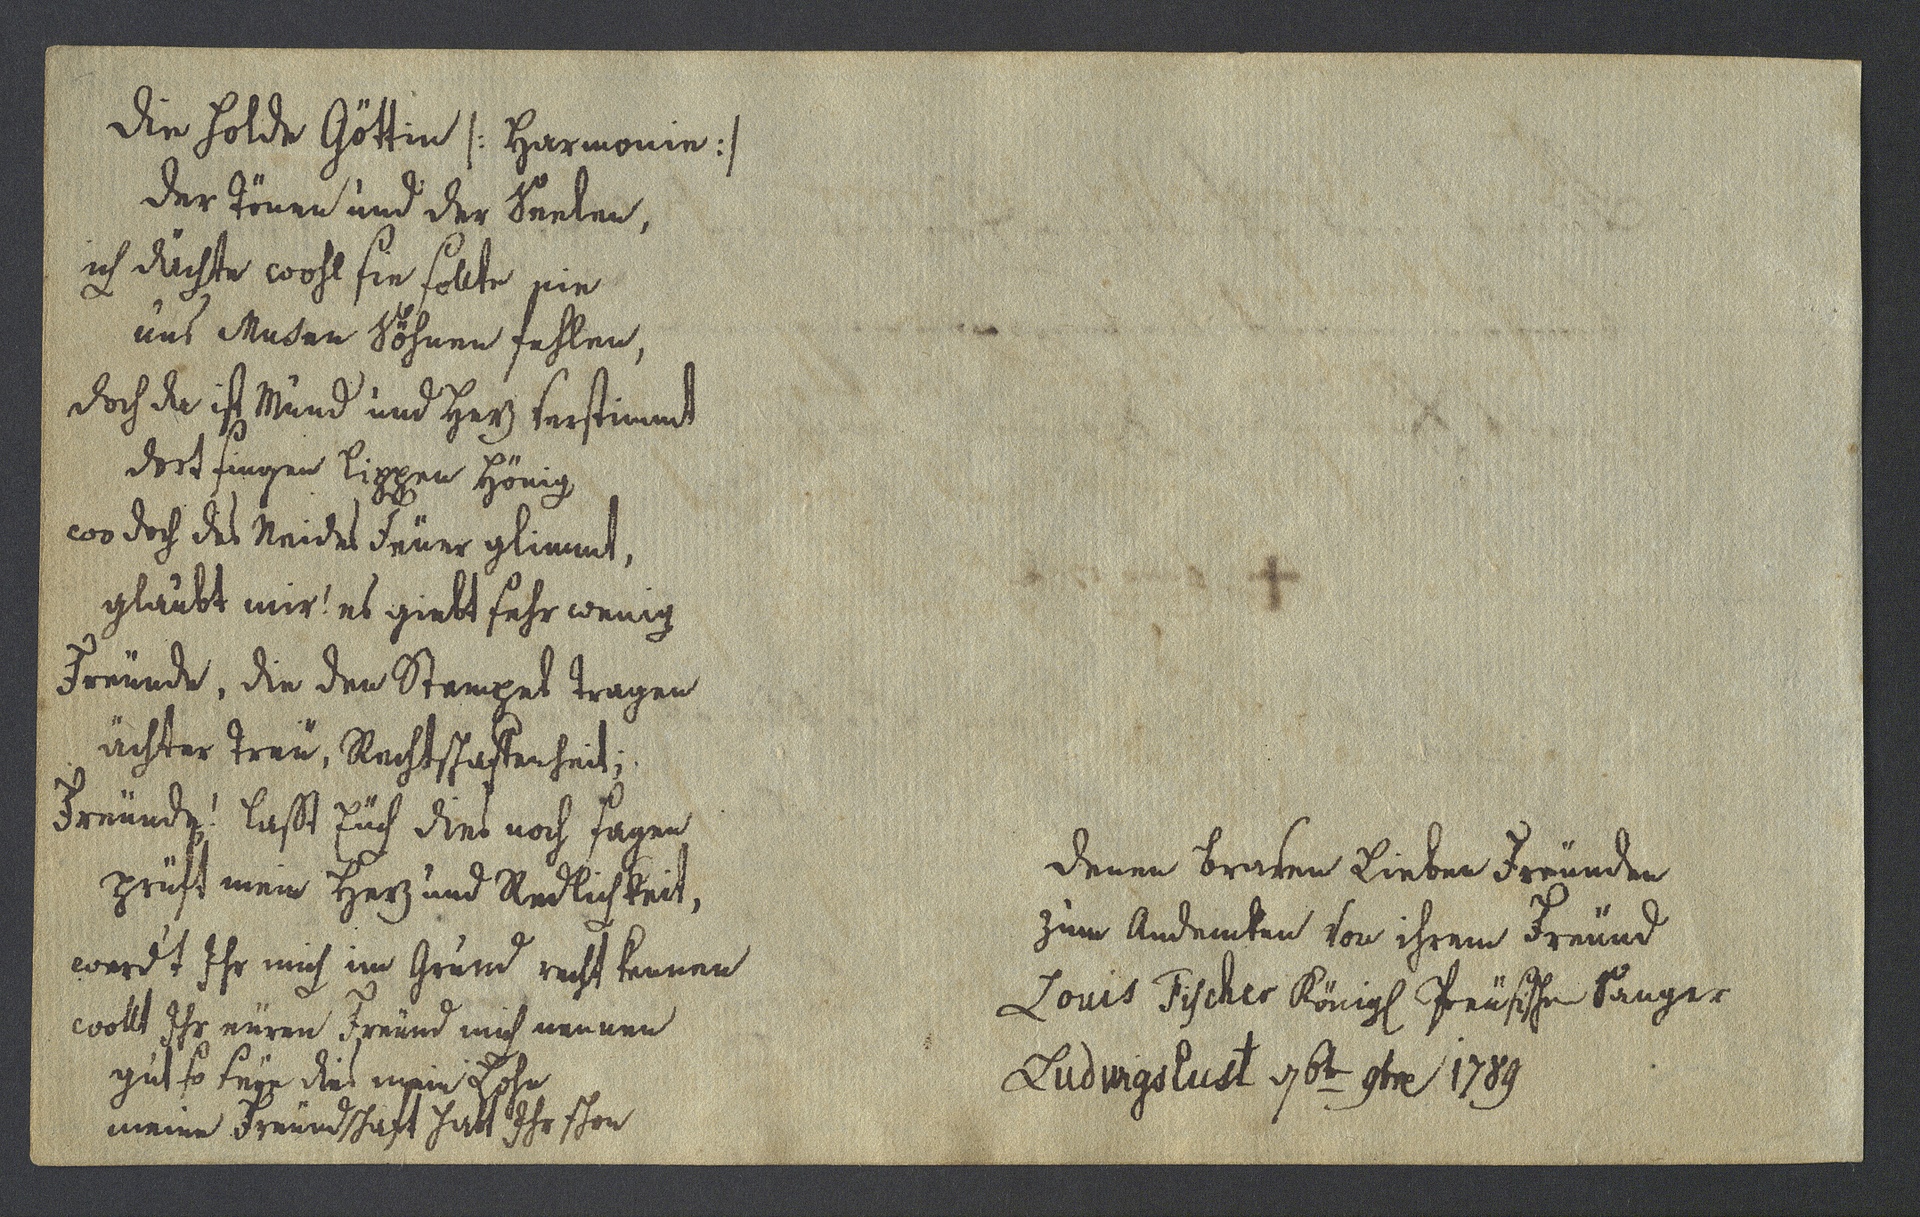 Die holde Göttin /: Harmonie :/
Der Tönen und der Seelen,
ich dächte wohl sie sollte nie
uns Musen Söhnen fehlen,
doch da ist Mund und Herz verstimmt
dort singen Lippen Hönig
wo doch des Neides Feüer glimmt,
glaubt mir! es giebt sehr wenig
Freünde, die den Stempel tragen
ächter Treü, Rechtschaffenheit;
Freünde! lasst Eüch dies noch sagen
prüft mein Herz und Redlichkeit,
werd't Ihr mich im Grund recht kennen
wollt Ihr eüren Freünd mich nennen
gut so seye dies mein Lohn
meine Freündschaft habt Ihr schon
Denen braven Lieben Freünden
zum Andenken von ihrem Freünd
Louis Fischer Königl Preüsischer Sänger
Ludwigslust 9bre 1789